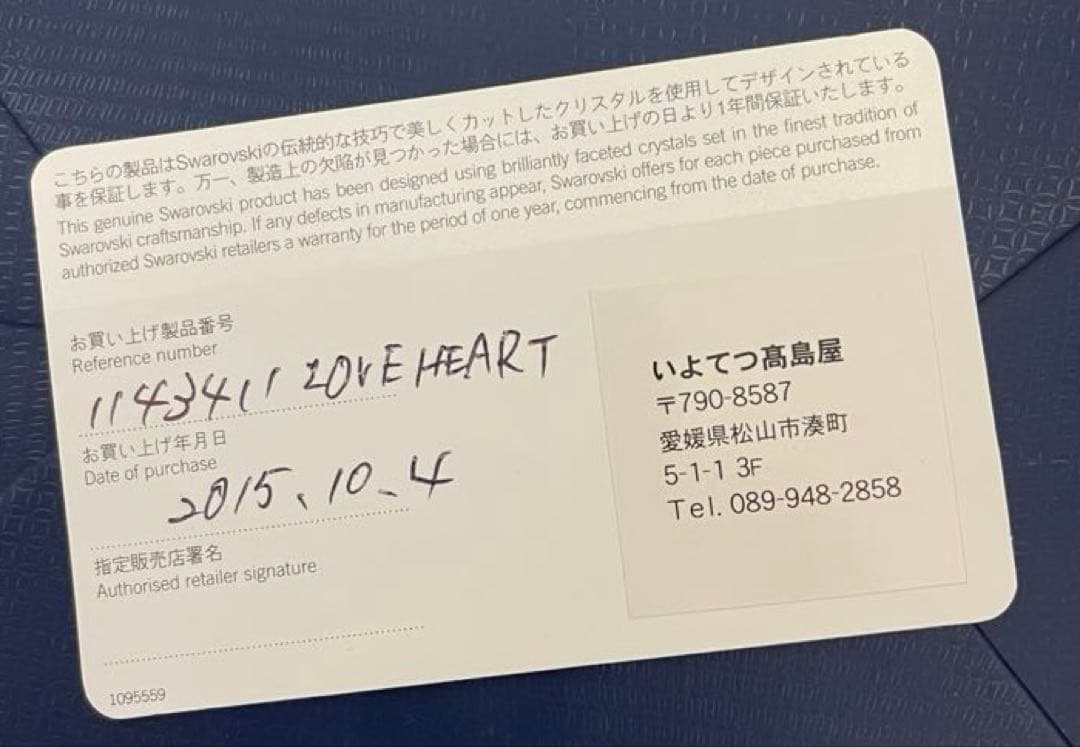 こちらの製品はSwarovskiの伝統的な技巧で美しくカットしたクリスタルを使用してデザインされている
事を保証します。万一、製造上の欠陥が見つかった場合には、お買い上げの日より1年間保証いたします。
This genuine Swarovski product has been designed using brilliantly faceted crystals set in the finest tradition of
Swarovski craftsmanship. If any defects in manufacturing appear, Swarovski offers for each piece purchased from
authorized Swarovski retailers a warranty for the period of one year, commencing from the date of purchase.
お買い上げ製品番号
Reference number
1143411 LOVE HEART
お買い上げ年月日
Date of purchase
2015、10、4
指定販売店署名
Authorised retailer signature
1095559
いよてつ髙島屋
〒790-8587
愛媛県松山市湊町
5-1-1 3F
Tel. 089-948-2858